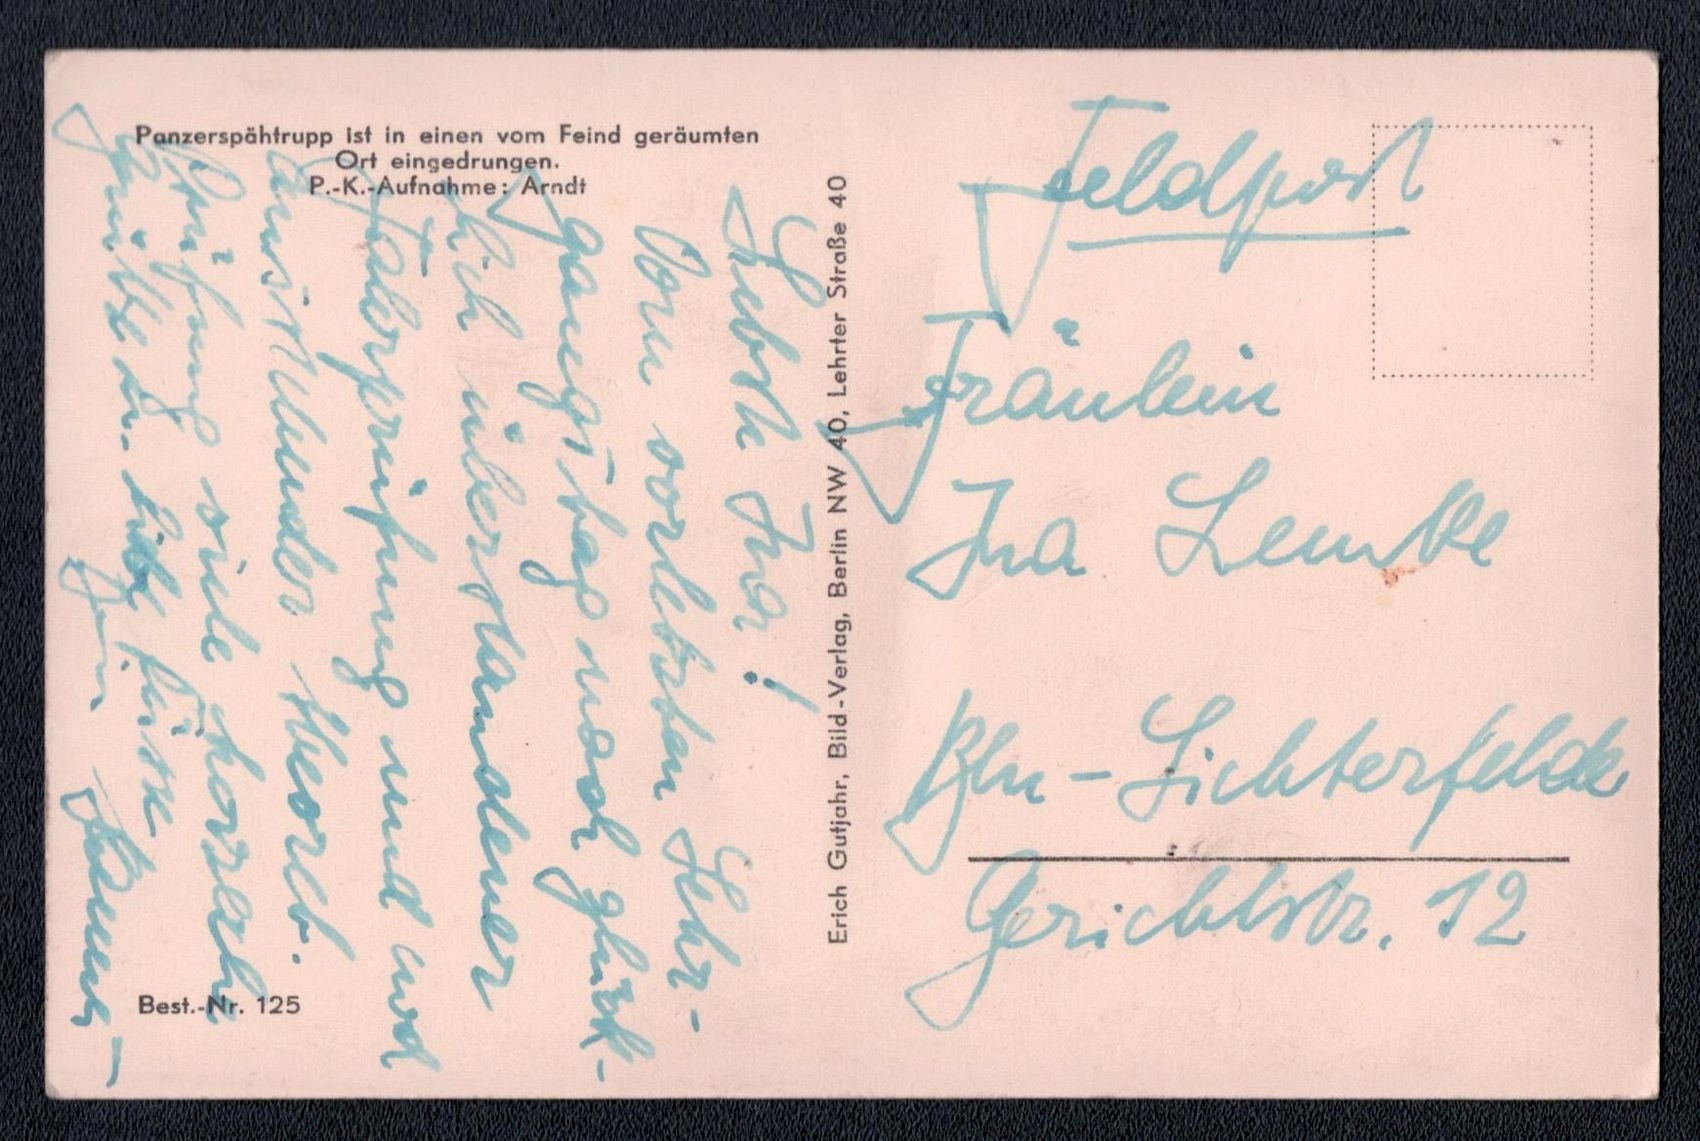 Panzerspähtrupp ist in einen vom Feind geräumten
Ort eingedrungen.
P.-K.-Aufnahme: Arndt
Liebste Ina!
Vom vorletzten Lehr-
gangstag nach glück-
lich überstandener
Fahrprüfung und
Prüfung viele herzliche
Grüße u. liebe Küsse
Best.-Nr. 125
Erich Gutjahr, Bild-Verlag, Berlin NW 40, Lehrter Straße 40
Feldpost
Fräulein
Ina Lemke
Bln-Lichterfelde
Gerichtstr. 12